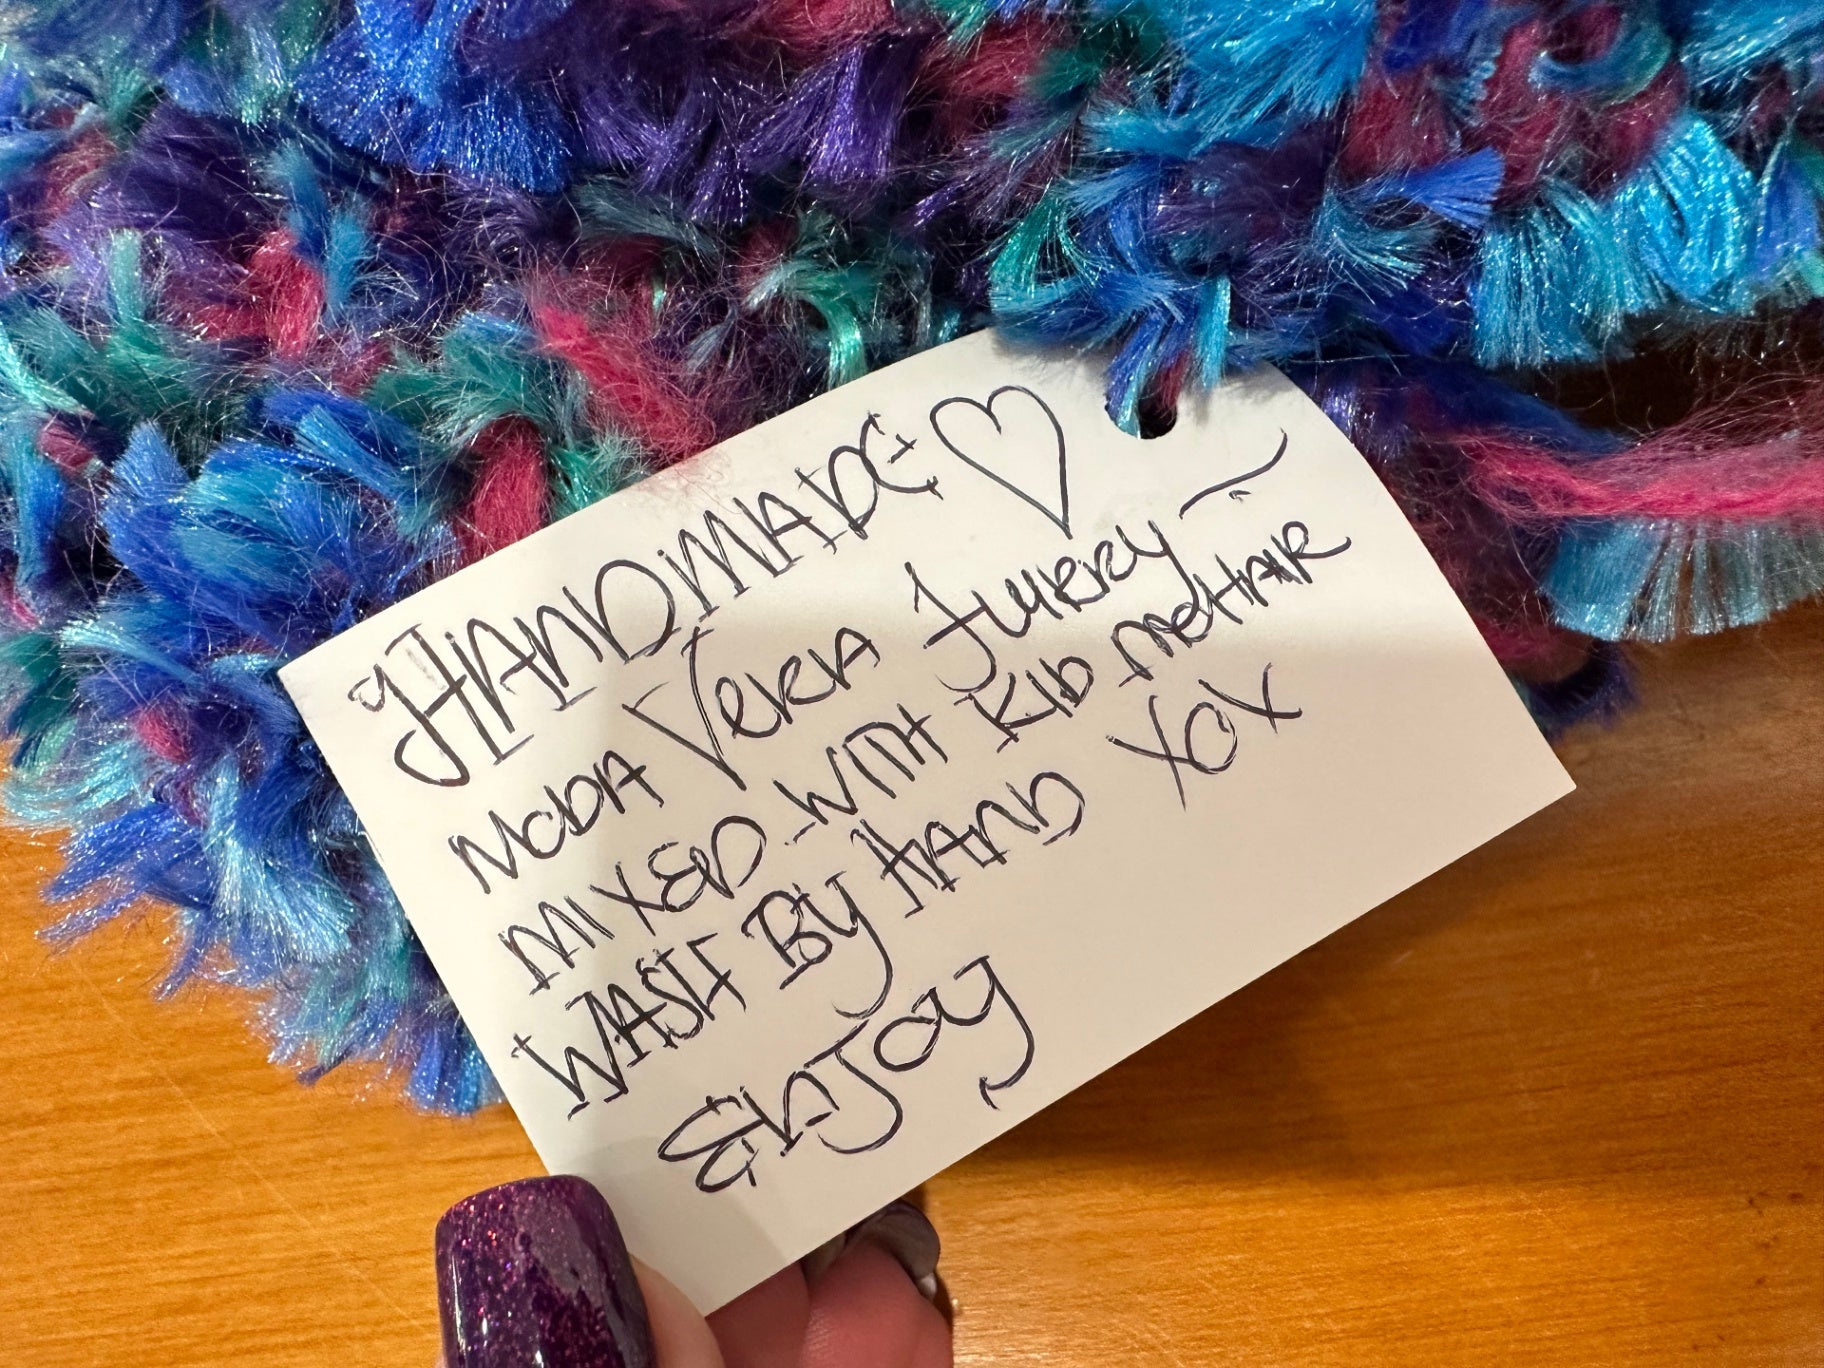 HANDMADE ♡
MODA VERA FLURRY ~
MIXED WITH KID MOHAIR
WASH BY HAND XOX
ENJOY